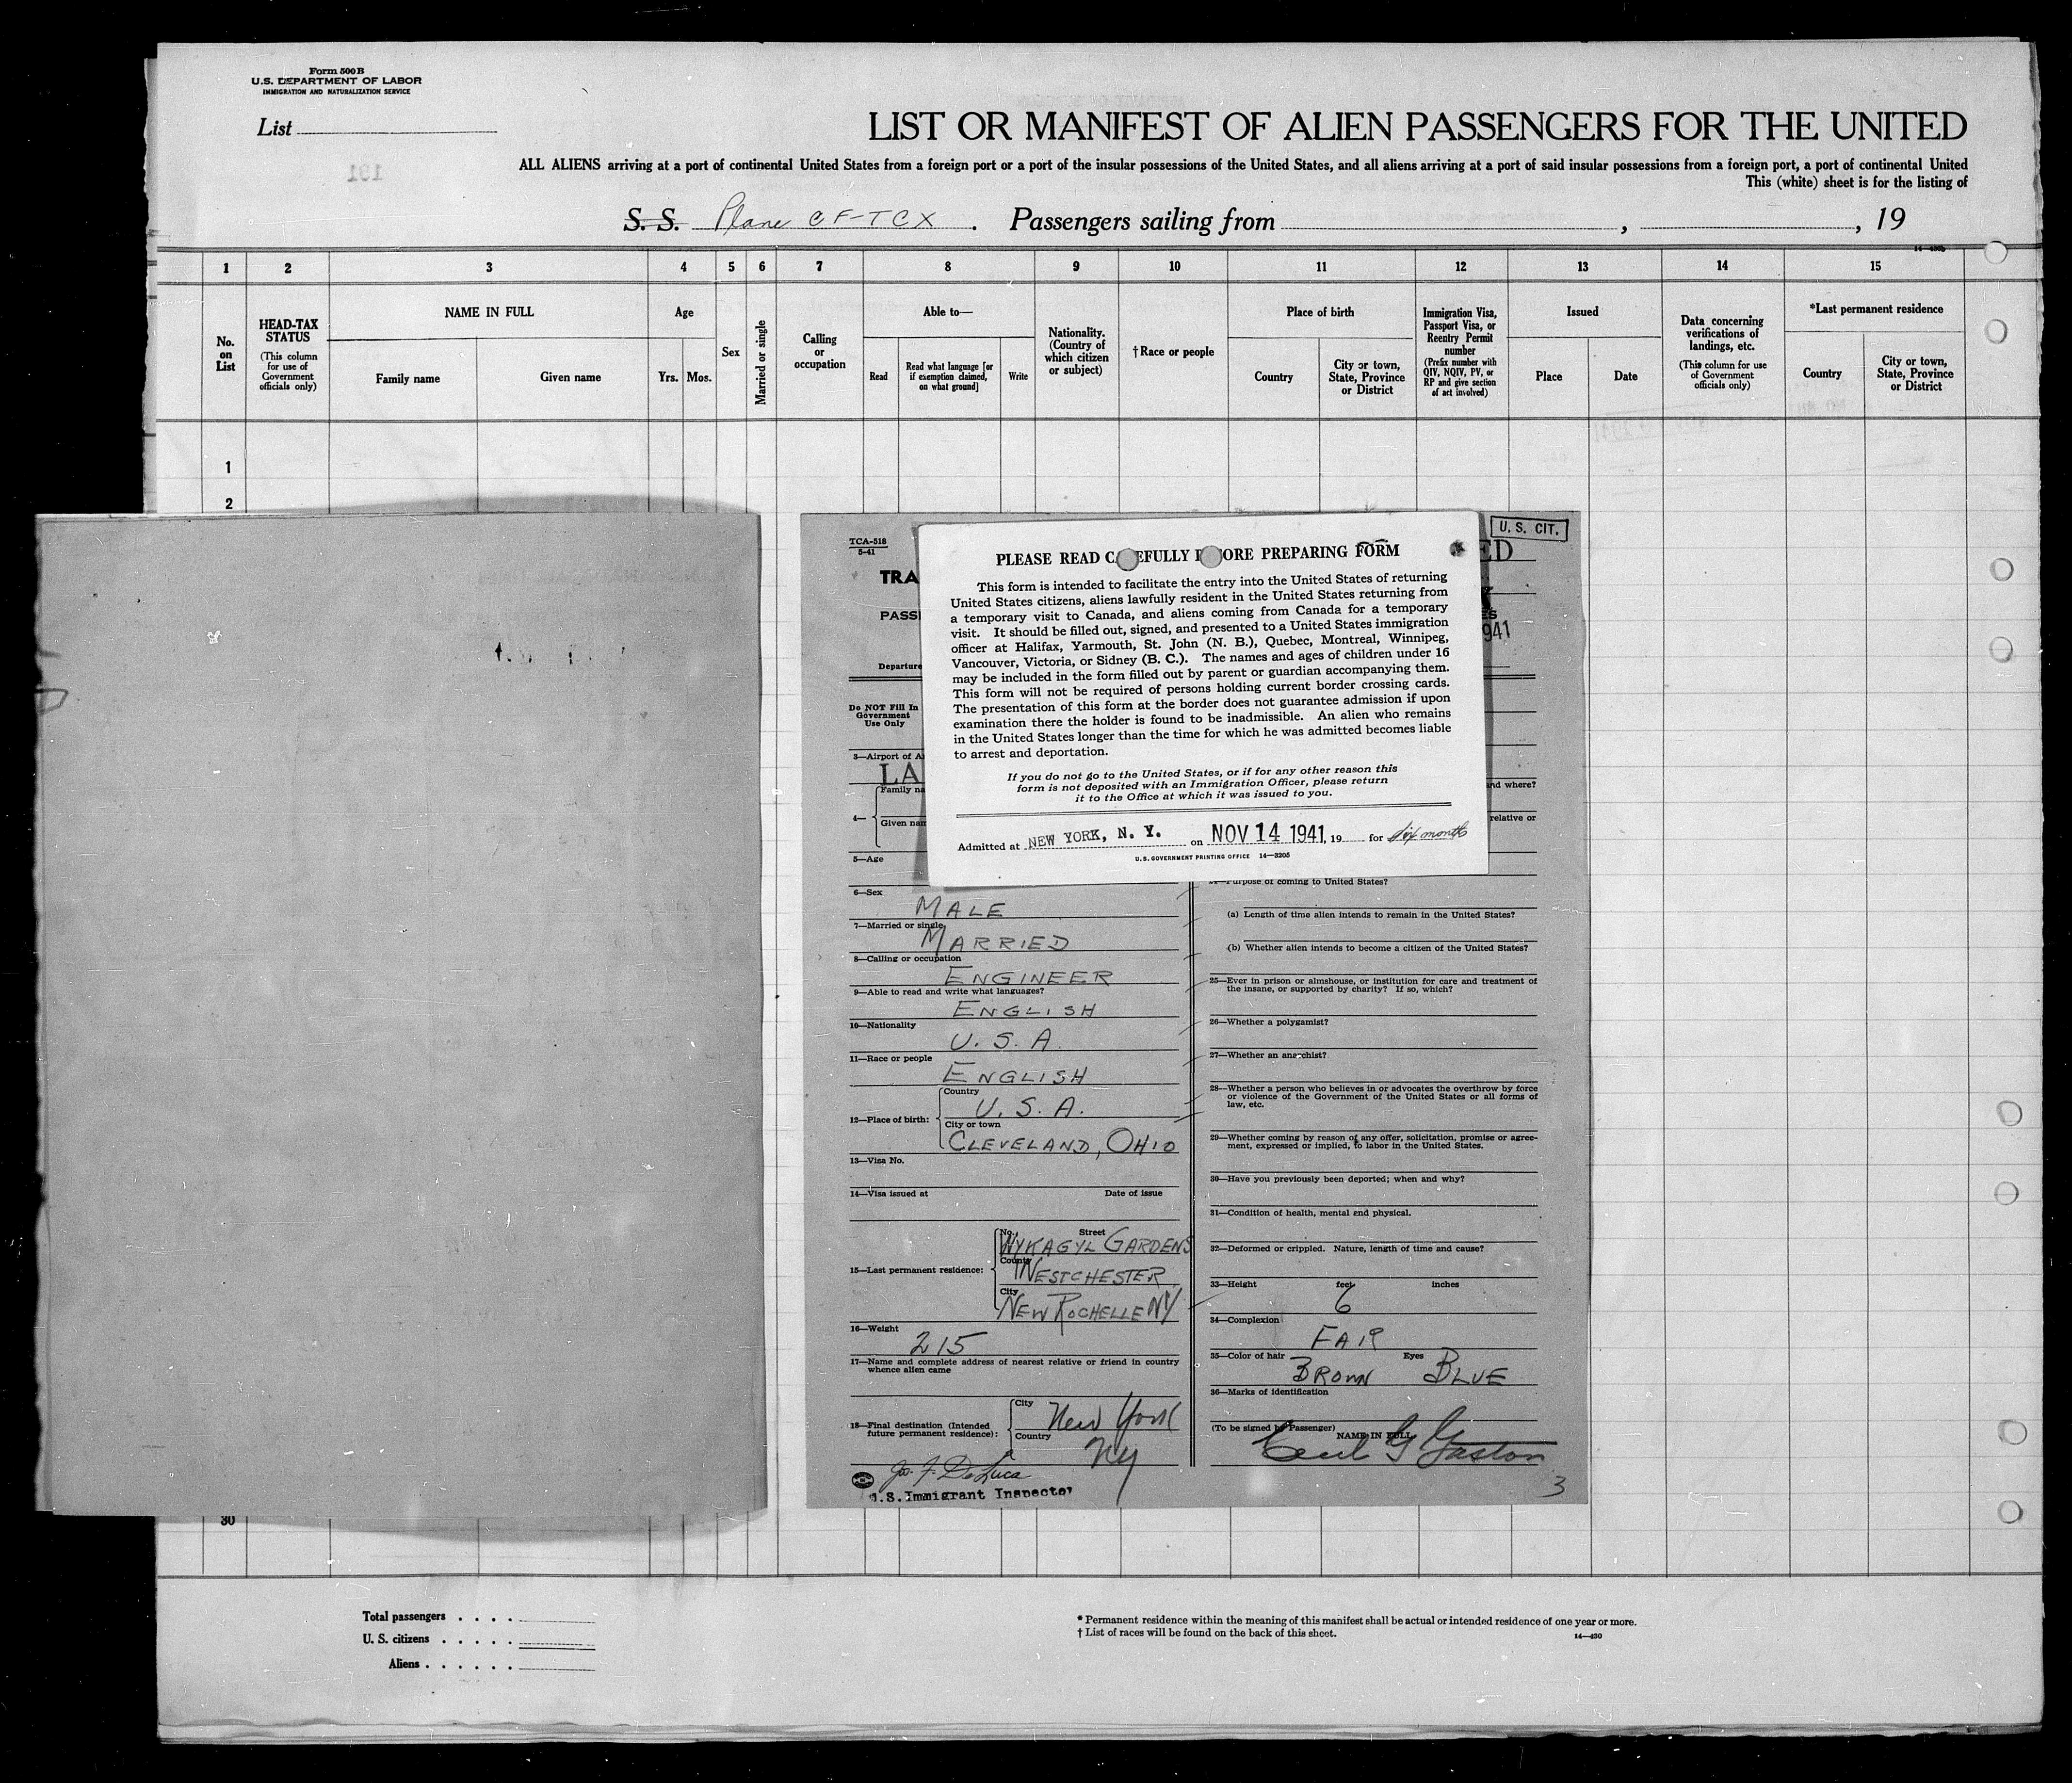 Form 500 B
U.S. DEPARTMENT OF LABOR
IMMIGRATION AND NATURALIZATION SERVICE
List
191
LIST OR MANIFEST OF ALIEN PASSENGERS FOR THE UNITED
ALL ALIENS arriving at a port of continental United States from a foreign port or a port of the insular possessions of the United States, and all aliens arriving at a port of said insular possessions from a foreign port, a port of continental United
This (white) sheet is for the listing of
S. S. Plane CF-TCX . Passengers sailing from , , 19
1 2 3 4 5 6 7 8 9 10 11 12 13 14 15
No. on List
HEAD-TAX STATUS
(This column for use of Government officials only)
NAME IN FULL
Family name
Given name
Age
Yrs. Mos.
Sex
Married or single
Calling or occupation
Able to—
Read
Read what language [or if exemption claimed, on what ground]
Write
Nationality. (Country of which citizen or subject)
†Race or people
Place of birth
Country
City or town, State, Province or District
Immigration Visa, Passport Visa, or Reentry Permit number
(Prefix number with QIV, NQIV, PV, or RP and give section of act involved)
Issued
Place
Date
Data concerning verifications of landings, etc.
(This column for use of Government officials only)
*Last permanent residence
Country
City or town, State, Province or District
1
2
TCA-518
5-41
TRA
PASS
Departure
U. S. CIT.
ED
941
Do NOT Fill In
Government
Use Only
3—Airport of A
LA
Family na
4—
Given nam
5—Age
and where?
relative or
PLEASE READ C EFULLY B ORE PREPARING FORM
This form is intended to facilitate the entry into the United States of returning
United States citizens, aliens lawfully resident in the United States returning from
a temporary visit to Canada, and aliens coming from Canada for a temporary
visit. It should be filled out, signed, and presented to a United States immigration
officer at Halifax, Yarmouth, St. John (N. B.), Quebec, Montreal, Winnipeg,
Vancouver, Victoria, or Sidney (B. C.). The names and ages of children under 16
may be included in the form filled out by parent or guardian accompanying them.
This form will not be required of persons holding current border crossing cards.
The presentation of this form at the border does not guarantee admission if upon
examination there the holder is found to be inadmissible. An alien who remains
in the United States longer than the time for which he was admitted becomes liable
to arrest and deportation.
If you do not go to the United States, or if for any other reason this
form is not deposited with an Immigration Officer, please return
it to the Office at which it was issued to you.
Admitted at NEW YORK, N. Y. on NOV 14 1941, 19 for six months
U.S. GOVERNMENT PRINTING OFFICE 14—3205
6—Sex
MALE
7—Married or single
MARRIED
8—Calling or occupation
ENGINEER
9—Able to read and write what languages?
ENGLISH
10—Nationality
U. S. A.
11—Race or people
ENGLISH
12—Place of birth:
Country
U. S. A.
City or town
CLEVELAND, OHIO
13—Visa No.
14—Visa issued at Date of issue
15—Last permanent residence:
No. Street
WYKAGYL GARDENS
County
WESTCHESTER
City
NEW ROCHELLE NY
16—Weight
215
17—Name and complete address of nearest relative or friend in country
whence alien came
18—Final destination (Intended
future permanent residence):
City
New York
Country
NY
Jos. F. De Luca
U.S. Immigrant Inspector
24—Purpose of coming to United States?
(a) Length of time alien intends to remain in the United States?
(b) Whether alien intends to become a citizen of the United States?
25—Ever in prison or almshouse, or institution for care and treatment of
the insane, or supported by charity? If so, which?
26—Whether a polygamist?
27—Whether an anarchist?
28—Whether a person who believes in or advocates the overthrow by force
or violence of the Government of the United States or all forms of
law, etc.
29—Whether coming by reason of any offer, solicitation, promise or agree-
ment, expressed or implied, to labor in the United States.
30—Have you previously been deported; when and why?
31—Condition of health, mental and physical.
32—Deformed or crippled. Nature, length of time and cause?
33—Height feet inches
6
34—Complexion
FAIR
35—Color of hair Eyes
BROWN BLUE
36—Marks of identification
(To be signed by Passenger)
NAME IN FULL
Cecil G Gaston
3
30
Total passengers . . . .
U. S. citizens . . . . .
Aliens . . . . . .
* Permanent residence within the meaning of this manifest shall be actual or intended residence of one year or more.
† List of races will be found on the back of this sheet.
14—430